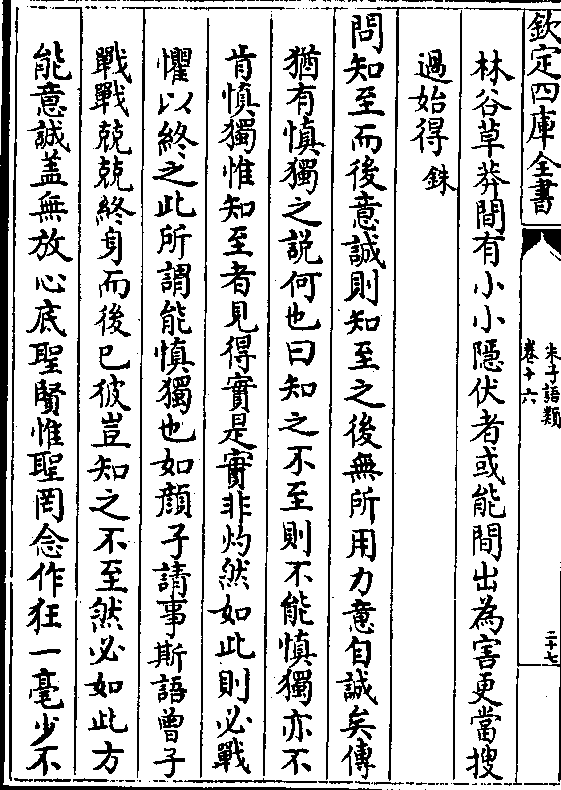 欽定四庫全書
朱子語類
卷十六
二十七
林谷草莽間有小小隱伏者或能間出為害更當搜
過始得 銖
問知至而後意誠則知至之後無所用力意自誠矣傳
猶有慎獨之説何也曰知之不至則不能慎獨亦不
肯慎獨惟知至者見得實是實非灼然如此則必戰
懼以終之此所謂能慎獨也如顔子請事斯語曾子
戰戰兢兢終身而後已彼豈知之不至然必如此方
能意誠盖無放心底聖賢惟聖罔念作狂一毫少不